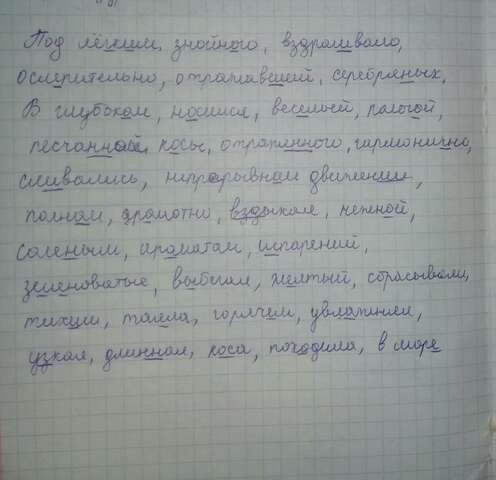 Под лёгким, знойного, вздрагивало,
ослепительно, отражавшей, серебряных,
В глубоком, носился, весёлый, пологой,
песчанной косы, отражённого, гармонично,
сливались, непрерывном движении,
полном, громотно, вздыхая, нежной,
соленым, ароматам, испарений,
зеленоватые, выбегая, желтый, сбрасывали,
тихий, таяла, горячем, увлажняя,
узкая, длинная, коса, походила, в море